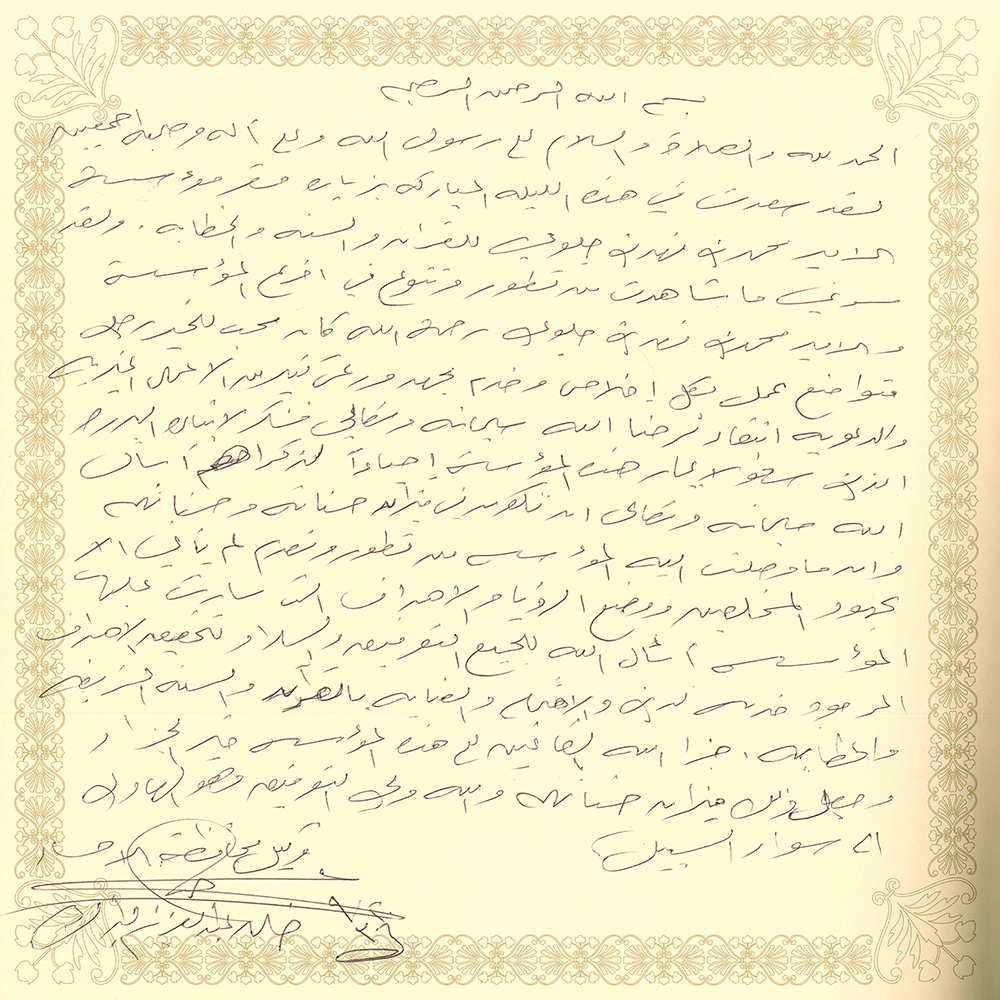 بسم الله الرحمن الرحيم
الحمد لله والصلاة والسلام على رسول الله وعلى آله وصحبه اجمعين
لقد سعدت في هذه الليله المباركه بزياره مقر مؤسسة
الامير محمد بن فهد بن جلوي للقران والسنه والخطابه . ولقد
سرني ما شاهدت من تطور وتنوع في افرع المؤسسة
والامير محمد بن فهد بن جلوي رحمة الله كان محب للخير رجل
متواضع عمل بكل إخلاص وخدم بجهد ورعى كثير من الاعمال الخيريه
والدعويه ابتغاء لرضا الله سبحانه وتعالى فشكر لابنائه البرره
الذين سعو لإعمار هذه المؤسسة إحياءاً لذكراهم أسال
الله سبحانه وتعالى ان تكون في ميزان حسناته وحسناتهم
وان ما وصلت اليه المؤسسه من تطور وتقدم لم يأتي الا
بجهود المخلصين ووضع الرؤيا والاهداف التي سارت عليها
المؤسسه أسال الله للجميع التوفيق والسداد وتحقيق الاهداف
المرجوه خدمه لدين والاهتمام والعنايه بالقرآن والسنه الشريفه
والخطابه . جزا الله القائمين على هذه المؤسسه خير الجزاء
وجعل ذلك في ميزان حسناتهم والله ولي التوفيق وهو الهادي
الى سواء السبيل
محافظة الاحساء
خالد عبدالعزيز